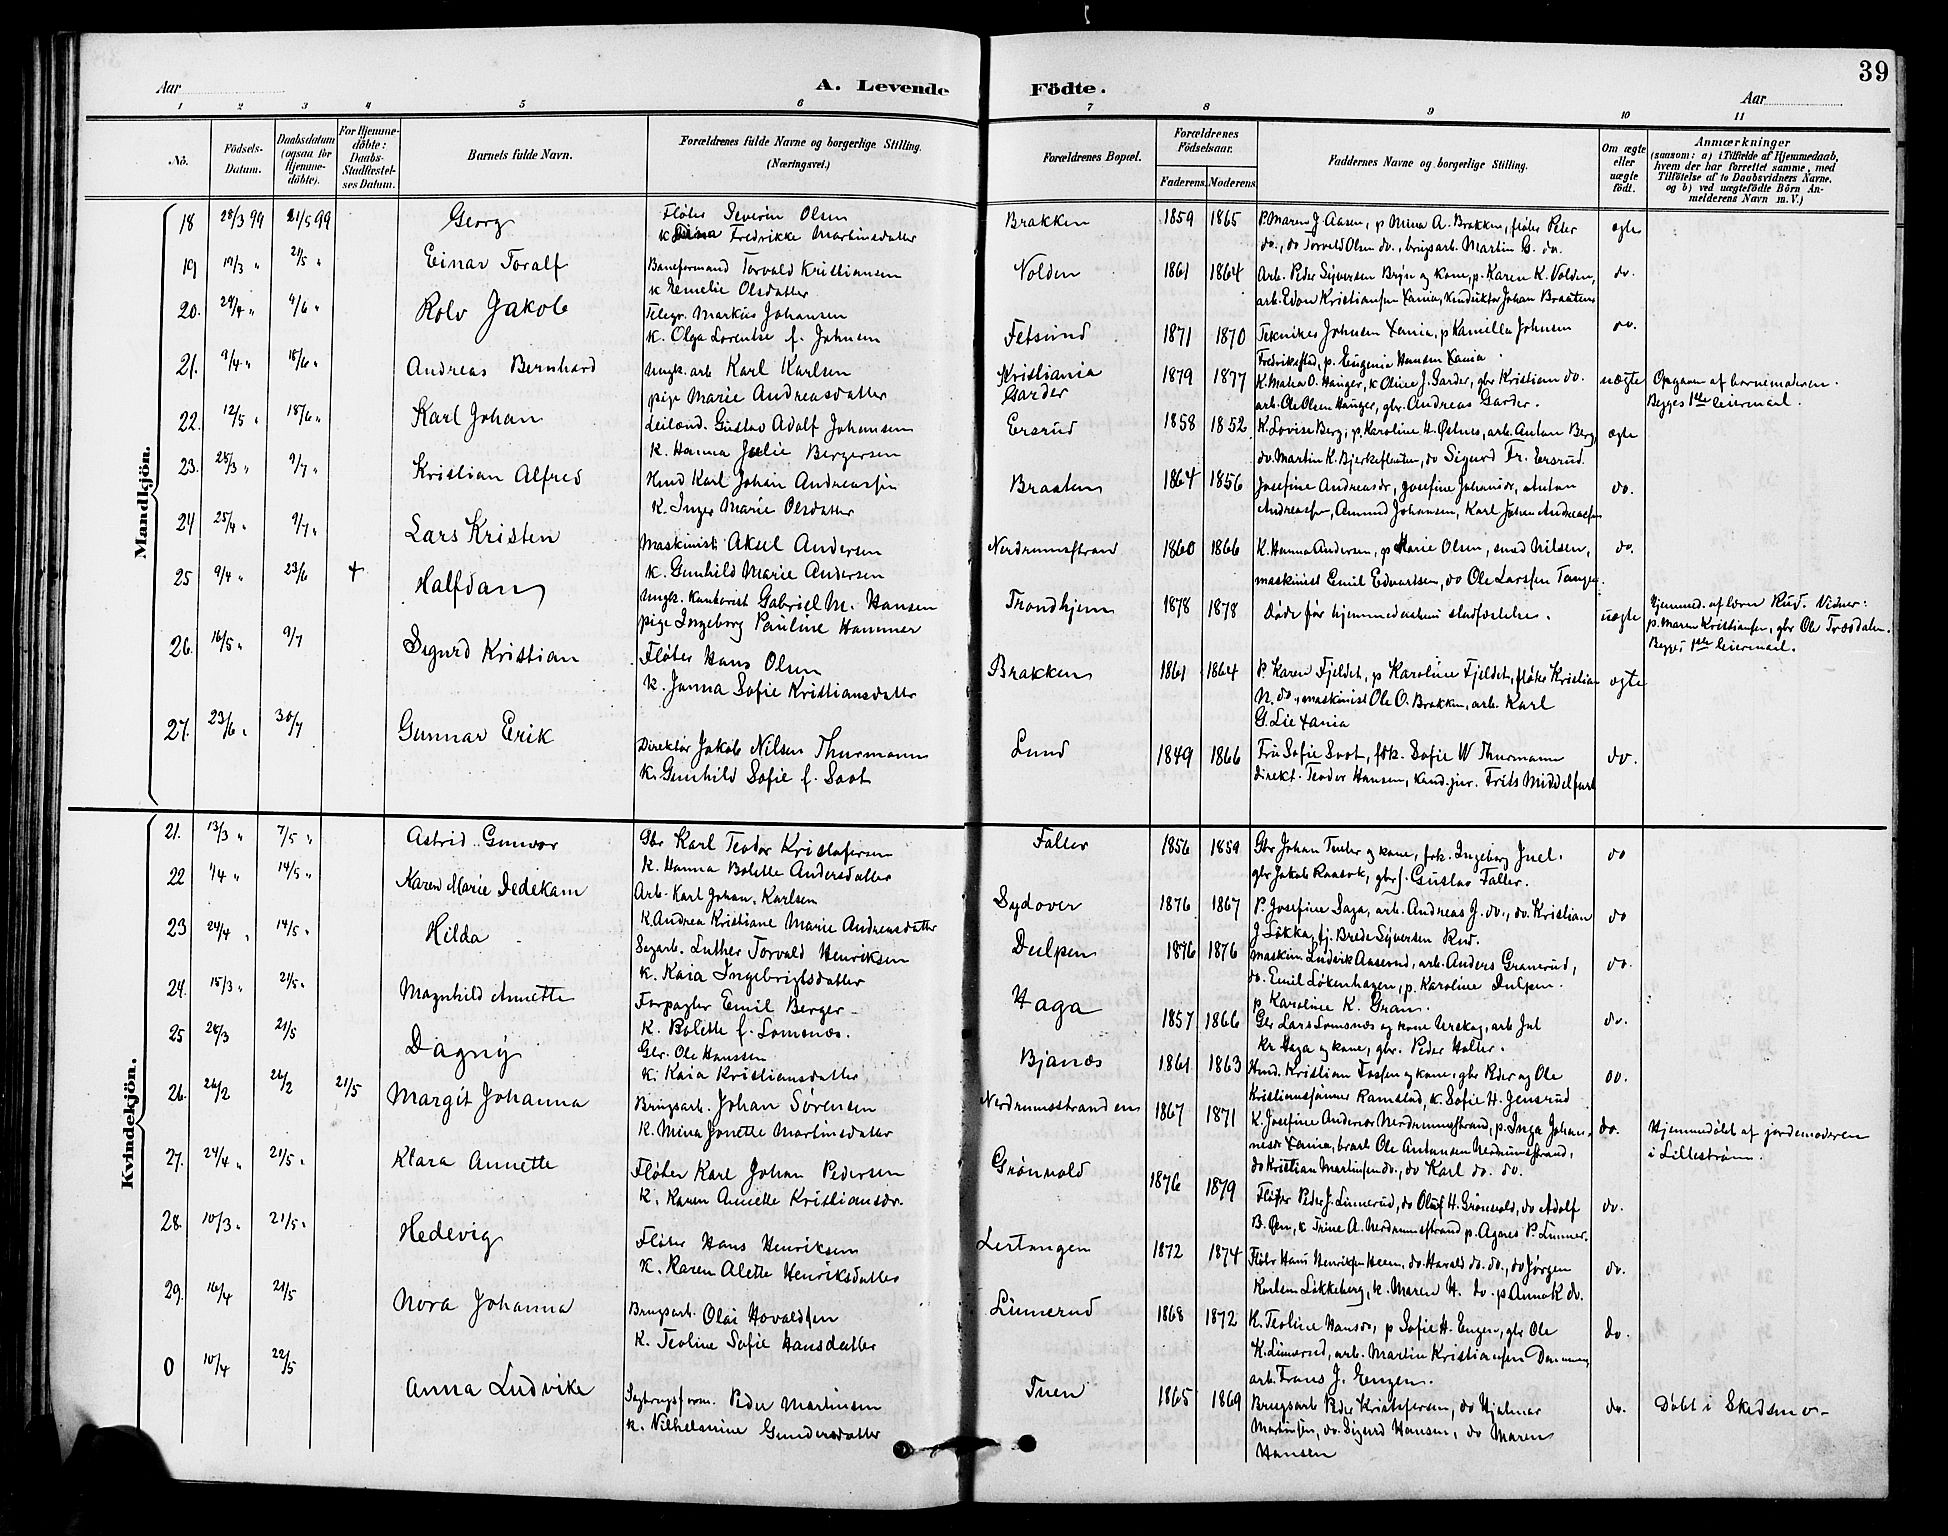 39
Aar
A. Levende Födte.
Aar
1 2 3 4 5 6 7 8 9 10 11
No.
Födsels-Datum.
Daabsdatum (ogsaa for Hjemme-döbte).
For Hjemme-döbte: Daabs-Stadfæstel-ses Datum.
Barnets fulde Navn.
Forældrenes fulde Navne og borgerlige Stilling. (Næringsvei.)
Forældrenes Bopæl.
Forældrenes Födselsaar.
Faderens. Moderens.
Faddernes Navne og borgerlige Stilling.
Om ægte eller uægte födt.
Anmærkninger
(saasom: a) i Tilfælde af Hjemmedaab, hvem der har forrettet samme, med Tilföielse af to Daabsvidners Navne, og b) ved uægtefödte Börn An-melderens Navn m. V.)
Mandkjön.
18 28/3 99 21/5 99 Georg Fløter Severin Olsen Brakken 1859 1865 P. Maren J. Aasen, p Mina A. Brakken, fløter Peter ægte
K. Fredrikke Martinsdatter do., do Torvald Olsen do., brugsarb. Martin G. do.
19 19/3 " 21/5 " Einar Toralf Baneformand Torvald Kristiansen Volden 1861 1864 Arb. Peder Syversen Bryn og kone, p. Karen K. Volden, do.
K Emelie Olsdatter arb. Edon Kristiansen Xania, konduktør Johan Braaten
20. 24/4 " 4/6 " Rolv Jakob Telegr. Markus Johansen Fetsund 1871 1870 Tekniker Johnsen Xania, p Kamilla Johnsen do.
K. Olga Lorentse f. Johnsen Fredrikstad, p. Eugenia Hansen Xania.
21. 9/4 " 18/6 " Andreas Bernhard Ungk. arb Karl Karlsen Kristiania 1879 1877 K. Malea O. Hauger, K Oline J. Garder, gbr Kristian do. uægte Opgaven af barnemoderen.
pige Marie Andreasdatter Garder arb. Ole Olsen Hauger, gbr. Andreas Garder. Begges 1ste leiermaal.
22. 12/5 " 18/6 " Karl Johan Leilænd. Gustav Adolf Johansen Ersrud 1858 1852 K. Lovise Berg, p. Karoline H. Østnes, arb. Anton Berg, ægte
K. Hanna Julie Bergersen do. Martin K. Bjerkeflaaten, do Sigurd Fr. Ersrud.
23. 28/3 " 9/7 " Kristian Alfred Hmd Karl Johan Andreassen Braaten 1864 1856 Josefine Andreasdr, Josefine Johansdr, Anton do.
K. Inger Marie Olsdatter Andreassen, Amund Johansen, Karl Johan Andreassen
24 25/4 " 9/7 " Lars Kristen Maskinist Aksel Andersen Nerdrumsstrand 1860 1866 K. Hanna Andersen, p Marie Olsen, smed Nilsen, do.
K. Gunhild Marie Andersen maskinist Emil Edvardsen, do Ole Larssen Tangen.
25 9/4 " 23/6 + Halfdan Ungk. Kontorist Gabriel M. Hansen Trondhjem 1878 1878 Døde før hjemmedaabens stadfæstelse. uægte Hjemmed. af lærer Rud. Vidner:
pige Ingeborg Pauline Hammer p. Maren Kristiansen, gbr Ole Træsdalen.
Begges 1ste leiermaal.
26. 16/5 " 9/7 Sigurd Kristian Fløter Hans Olsen Brakken 1861 1864 P. Karen Fjeldet, p Karoline Fjeldet, fløter Kristian ægte
K. Janna Sofie Kristiansdatter N. do., maskinist Ole O. Brakken, arb. Karl
G. Lie Xania
27. 23/6 " 30/7 Gunnar Erik Direktør Jakob Nilsen Thurmann Lund 1849 1866 Fru Sofie Soot, frk. Sofie W Thurmann do.
K. Gunhild Sofie f. Soot direkt. Teodor Hansen, kand. jur. Frits Middelfart
Kvindekjön.
21. 13/3 " 7/5 " Astrid Gunvor Gbr Karl Teodor Kristofersen Faller 1856 1859 Gbr Johan Tuter og kone, frk. Ingeborg Juel. do
K. Hanna Bolette Andersdatter gbr Jakob Raasok, gbr J. Gustav Faller.
22 1/4 " 14/5 " Karen Marie Dedekam Arb. Karl Johan Karlsen Sydover 1876 1867 P. Josefine Saga, arb. Andreas J. do., do. Kristian do
K. Andrea Kristiane Marie Andreasdatter J Løkka, tj. Brede Syversen Rud.
23 24/4 " 14/5 " Hilda Sagarb. Luther Torvald Henriksen Dulpen 1876 1876 Maskin Ludvik Aaserud, arb. Anders Granerud, do.
K. Kaia Ingebrigtsdatter do. Emil Løkenhagen, p. Karoline Dulpen.
p Karoline K. Gran.
24. 15/3 " 21/5 " Magnhild Annette Forpagter Emil Berger Haga 1857 1866 Gbr Lars Lomsnæs og kone Urskog, arb Jul do.
K. Bolette f. Lomsnæs. Kr Haga og kone, gbr. Peder Halter.
25 28/3 21/5 Dagny Gbr. Ole Hanssen Bjanæs 1861 1863 Hmd. Kristian Fossen og kone, gbr Peder og Ole do.
K. Kaia Kristiansdatter Kristianssønner Ramstad, K. Sofie H. Jensrud
26. 26/2 26/2 21/5 Margit Johanna Brugsarb. Johan Sørensen Nerdrumsstranden 1867 1871 K. Josefine Andersdr Nerdrumsstrand, p. Inga Johan- do. Hjemmedøbt af jordemoderen
K. Mina Jonette Martinsdatter nesdr Xania, br.arb Ole Antonsen Nerdrumsstrand, i Lillestrøm.
do Kristian Martinsen do., do Karl do. do.
27. 24/4 " 21/5 " Klara Annette Fløter Karl Johan Pedersen Grønvold 1876 1879 Fløter Peder J. Linnerud, do Oluf H. Grønvold, do Adolf do.
K. Karen Annette Kristiansdr. B. Øen, K Trine A. Nerdrumsstrand p. Agnes P. Linner.
28. 10/3 " 21/5 " Hedevig Fløter Hans Henriksen Lertangen 1872 1874 Fløter Hans Henriksen Heen, do. Harald do. do., do Jørgen do.
K. Karen Alette Henriksdatter Karlsen Løkkeberg, K. Maren H. do. p Anna K do.
29. 16/4 21/5 Nora Johanna Brugsarb. Olai Hovaldsen Linnerud 1868 1872 K. Teoline Hansdr, p Sofie H. Engen, gbr Ole do.
K. Teoline Sofie Hansdatter K. Linnerud, arb. Martin Kristiansen
arb. Frans J. Engen.
0 10/4 22/5 Anna Ludvike Sagbrugsform. Peder Martinsen Tuen 1865 1869 Brugsarb Peder Kristofersen, do Hjalmar do. Døbt i Skedsmo
K. Vilhelmine Gundersdatter Martinsen, do. Sigurd Hansen, do Maren
Hansen